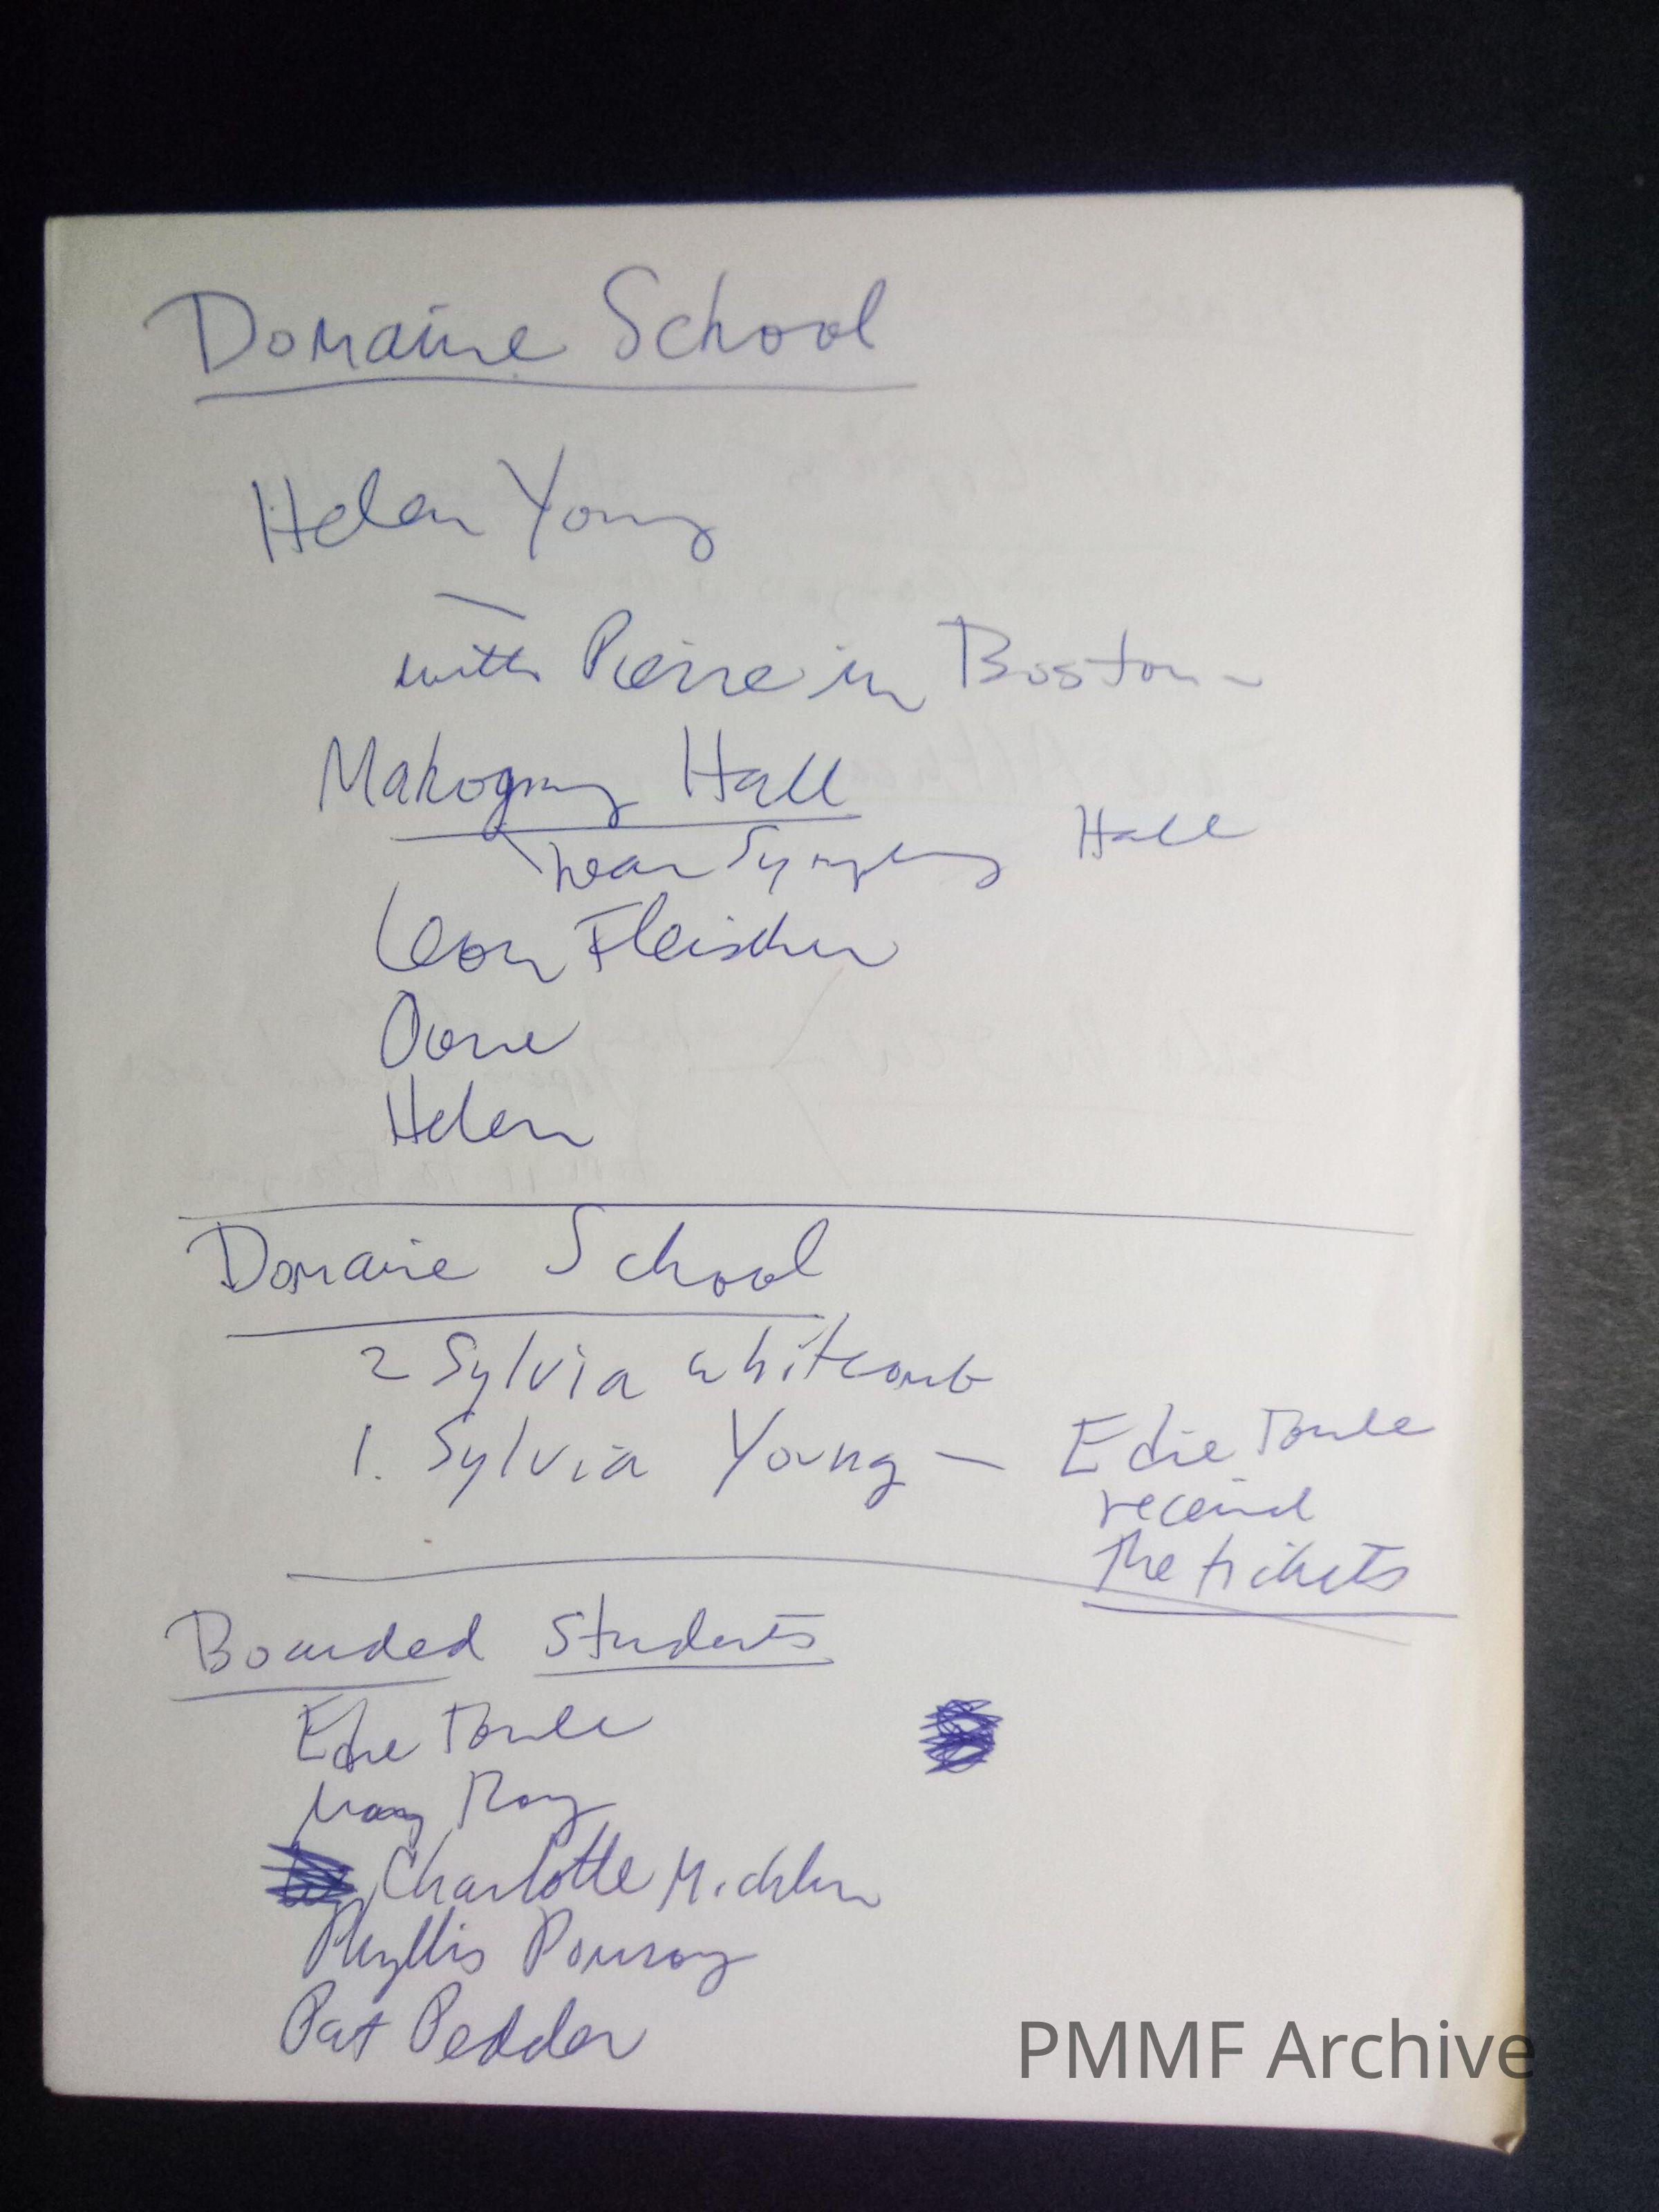 Domaine School
Helen Young
— with Pierre in Boston –
Mahogany Hall
near Symphony Hall
Leon Fleischer
Helen
Domaine School
2 Sylvia Whitcomb
1. Sylvia Young — Edie
received
the tickets
Boarded Students
Edie
Charlotte
Phyllis
Pat Pedder
PMMF Archive